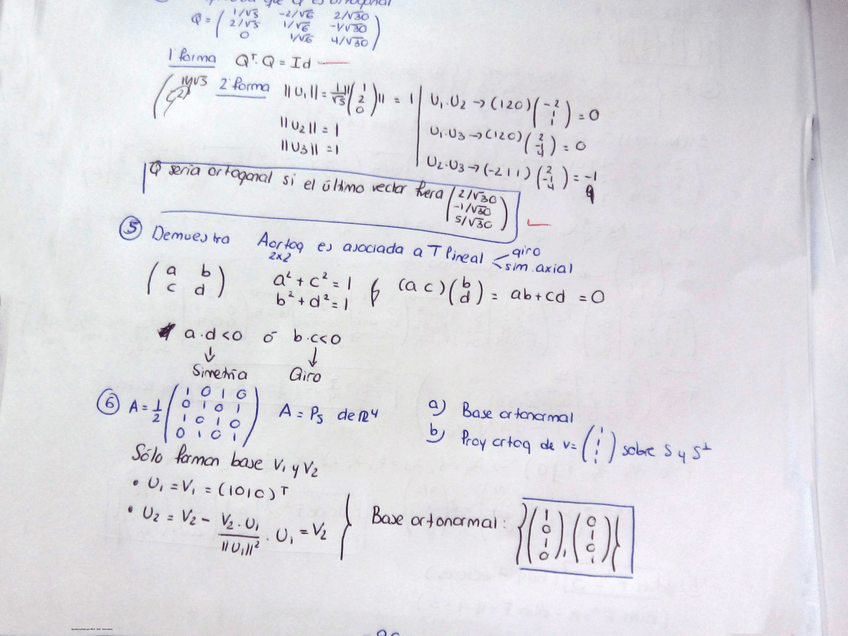 que Q es ortogonal
Q = ( 1/√5 -2/√6 2/√30
2/√5 1/√6 -1/√30
0 1/√6 4/√30 )
1ª forma Q^T · Q = Id
2ª forma ||U₁|| = 1/√5 || (1 2 0) || = 1
||U₂|| = 1
||U₃|| = 1
U₁·U₂ → (1 2 0) (-2 1 1) = 0
U₁·U₃ → (1 2 0) (2 -1 4) = 0
U₂·U₃ → (-2 1 1) (2 -1 4) = -1
Q sería ortogonal si el último vector fuera (2/√30 -1/√30 5/√30)
⑤ Demuestra A ortog 2x2 es asociada a T lineal < giro
sim axial
( a b
c d ) a² + c² = 1
b² + d² = 1 (a c) (b d) = ab + cd = 0
a·d < 0 ó b·c < 0
↓ ↓
Simetría Giro
⑥ A = 1/2 ( 1 0 1 0
0 1 0 1
1 0 1 0
0 1 0 1 ) A = Ps de R⁴
a) Base ortonormal
b) Proy ortog de v = (1 1 1 1) sobre S y S⊥
Sólo forman base V₁ y V₂
• U₁ = V₁ = (1010)^T
• U₂ = V₂ - V₂·U₁ / ||U₁||² · U₁ = V₂
Base ortonormal: { (1 0 1 0), (0 1 0 1) }